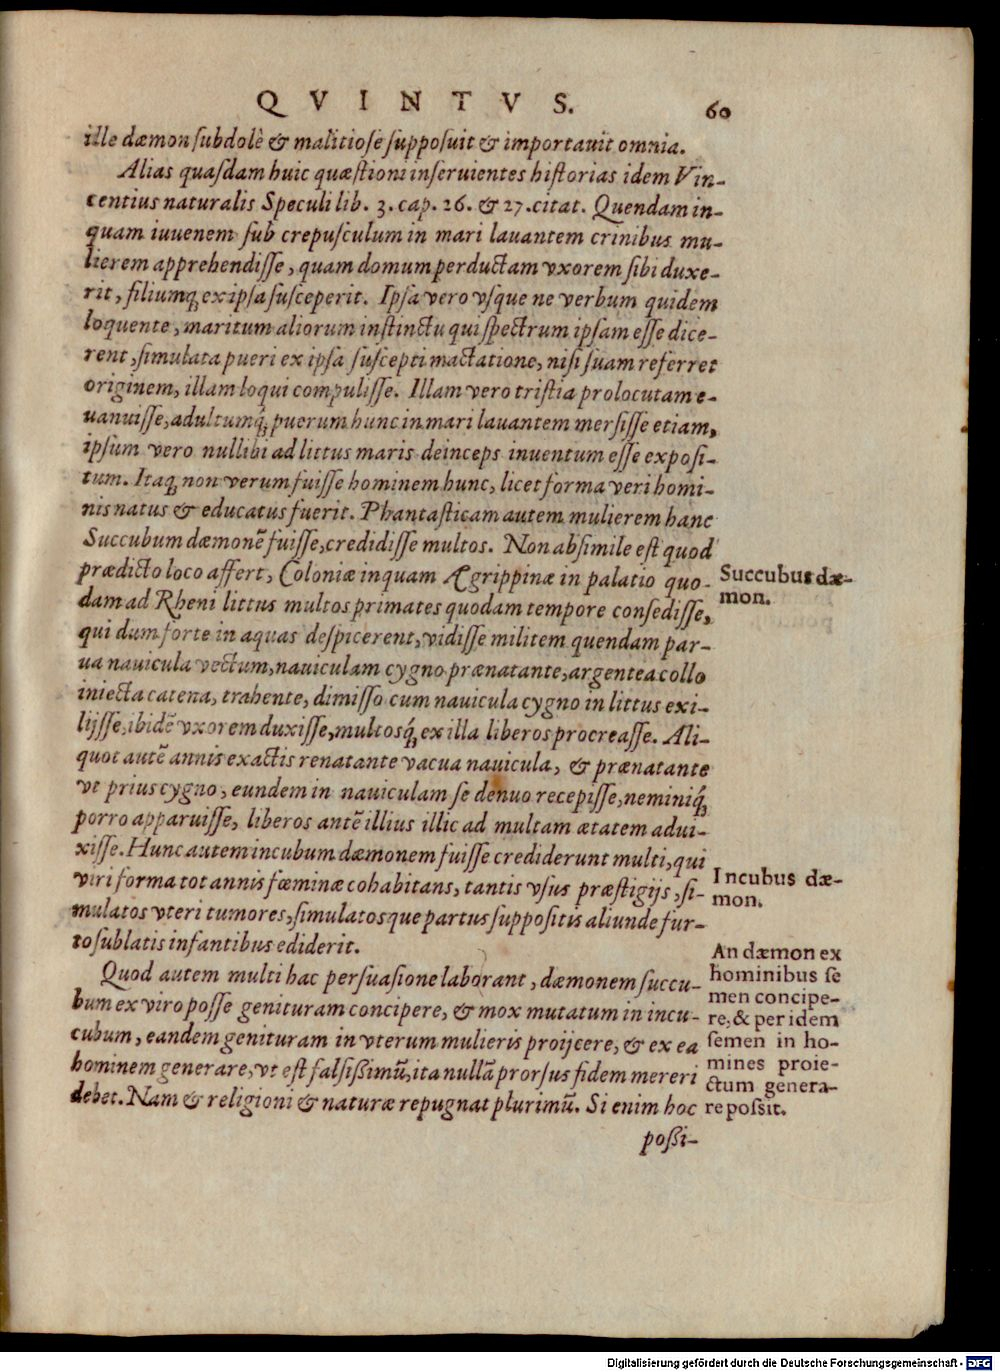 QVINTVS. 60
ille dæmon subdolè & malitiose supposuit & importauit omnia.
Alias quasdam huic quæstioni inseruientes historias idem Vin-
centius naturalis Speculi lib. 3. cap. 26. & 27. citat. Quendam in-
quam iuuenem sub crepusculum in mari lauantem crinibus mu-
lierem apprehendisse, quam domum perductam vxorem sibi duxe-
rit, filiumq; ex ipsa susceperit. Ipsa vero vsque ne verbum quidem
loquente, maritum aliorum instinctu qui spectrum ipsam esse dice-
rent, simulata pueri ex ipsa suscepti mactatione, nisi suam referret
originem, illam loqui compulisse. Illam vero tristia prolocutam e-
uanuisse, adultumq́; puerum hunc in mari lauantem mersisse etiam,
ipsum vero nullibi ad littus maris deinceps inuentum esse exposi-
tum. Itaq; non verum fuisse hominem hunc, licet forma veri homi-
nis natus & educatus fuerit. Phantasticam autem mulierem hanc
Succubum dæmonẽ fuisse, credidisse multos. Non absimile est quod
prædicto loco affert, Coloniæ inquam Agrippinæ in palatio quo-
dam ad Rheni littus multos primates quodam tempore consedisse,
qui dum forte in aquas despicerent, vidisse militem quendam par-
ua nauicula vectum, nauiculam cygno prænatante, argentea collo
iniecta catena, trahente, dimisso cum nauicula cygno in littus exi-
lijsse, ibidẽ vxorem duxisse, multosq́; ex illa liberos procreasse. Ali-
quot autẽ annis exactis renatante vacua nauicula, & prænatante
vt prius cygno, eundem in nauiculam se denuo recepisse, neminiq́;
porro apparuisse, liberos antẽ illius illic ad multam ætatem adui-
xisse. Hunc autem incubum dæmonem fuisse crediderunt multi, qui
viri forma tot annis fœminæ cohabitans, tantis vsus præstigijs, si-
mulatos vteri tumores, simulatosque partus suppositis aliunde fur-
to sublatis infantibus ediderit.
Quod autem multi hac persuasione laborant, dæmonem succu-
bum ex viro posse genituram concipere, & mox mutatum in incu-
cubum, eandem genituram in vterum mulieris proijcere, & ex ea
hominem generare, vt est falsißimũ, ita nullã prorsus fidem mereri
debet. Nam & religioni & naturæ repugnat plurimũ. Si enim hoc
poßi-
Succubus dæ-
mon.
Incubus dæ-
mon.
An dæmon ex
hominibus se
men concipe-
re, & per idem
semen in ho-
mines proie-
ctum genera-
re possit.
Digitalisierung gefördert durch die Deutsche Forschungsgemeinschaft - DFG